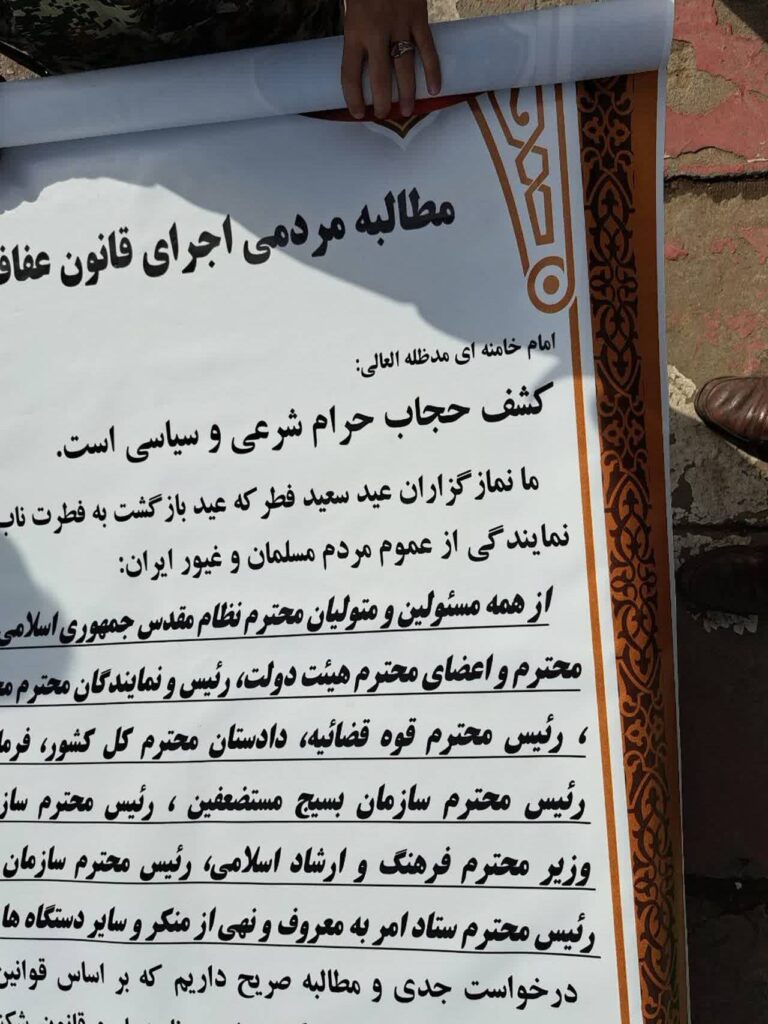 مطالبه مردمی اجرای قانون عفاف
امام خامنه ای مدظله العالی:
کشف حجاب حرام شرعی و سیاسی است.
ما نمازگزاران عید سعید فطر که عید بازگشت به فطرت ناب
نمایندگی از عموم مردم مسلمان و غیور ایران:
از همه مسئولین و متولیان محترم نظام مقدس جمهوری اسلامی
محترم و اعضای محترم هیئت دولت، رئیس و نمایندگان محترم
، رئیس محترم قوه قضائیه، دادستان محترم کل کشور،
رئیس محترم سازمان بسیج مستضعفین ، رئیس محترم
وزیر محترم فرهنگ و ارشاد اسلامی، رئیس محترم سازمان
رئیس محترم ستاد امر به معروف و نهی از منکر و سایر دستگاه ها
درخواست جدی و مطالبه صریح داریم که بر اساس قوانین